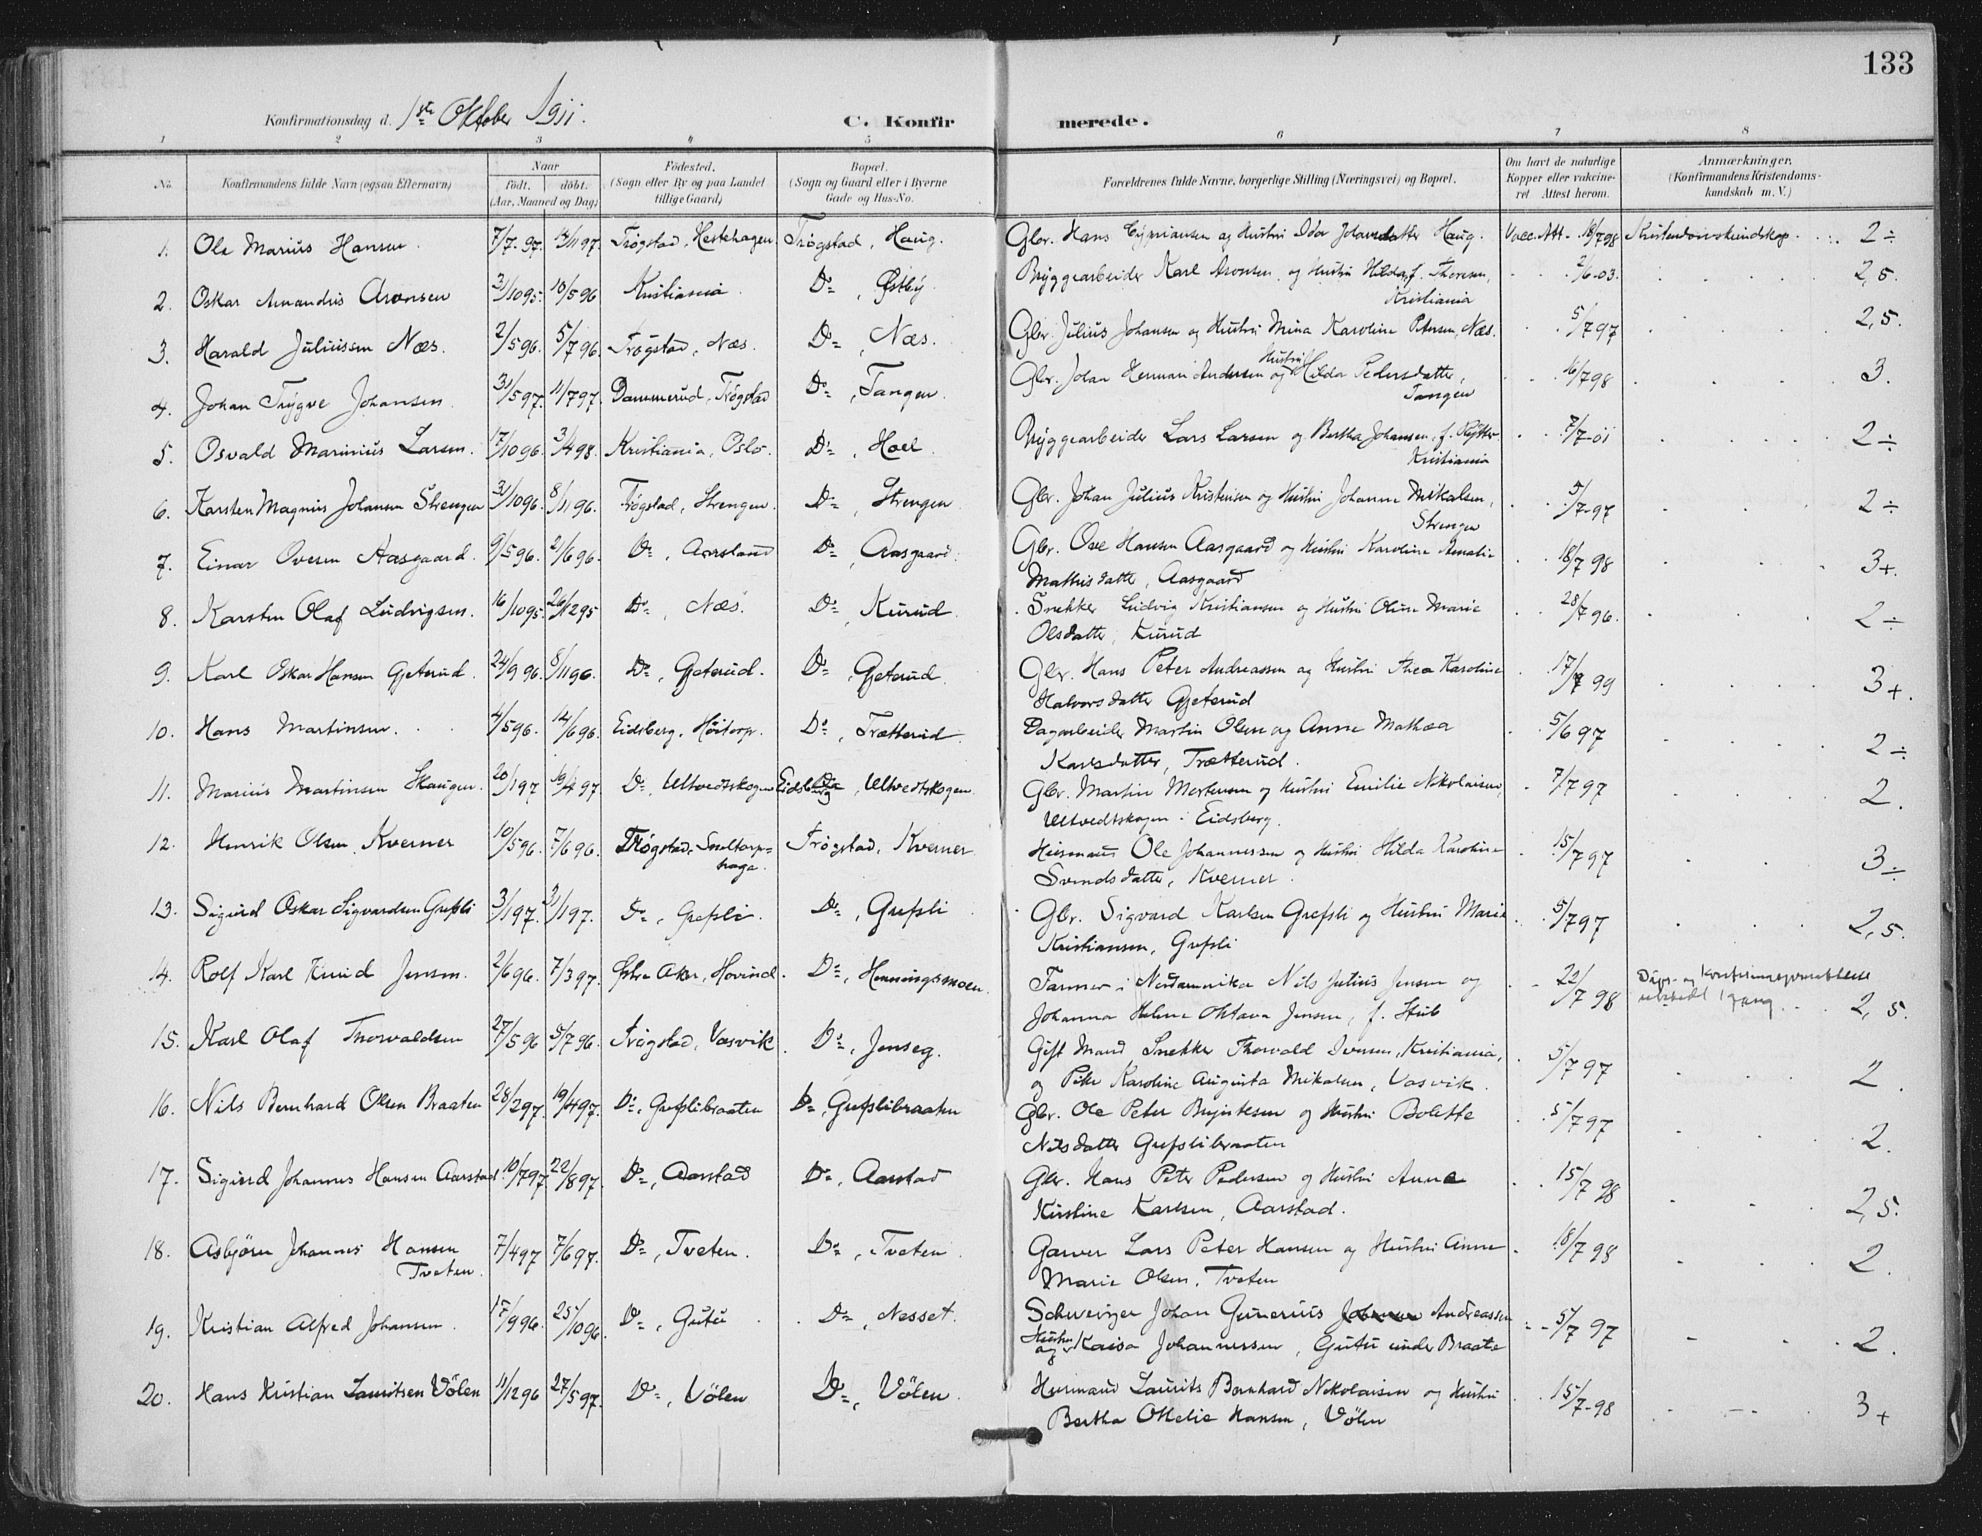 133
Konfirmationsdag d. 1ste Oktober 1911.
C. Konfirmerede.
1 2 3 4 5 6 7 8
No. Konfirmandens fulde Navn (ogsaa Efternavn) Naar født. døbt. (Aar, Maaned og Dag) Fødested. (Sogn eller By og paa Landet tillige Gaard) Bopæl. (Sogn og Gaard eller i Byerne Gade og Hus-No. Forældrenes fulde Navne, borgerlige Stilling (Næringsvei) og Bopæl. Om havt de naturlige Kopper eller vakcineret Attest herom. Anmærkninger. (Konfirmandens Kristendomskundskab m. V.)
1. Ole Marius Hansen 7/7 97. 14/11 97. Trøgstad, Hestehagen Trøgstad, Haug. Gbr. Hans Cypriansen og Hustri Ida Johansdatter Haug. Vacc. Att. 16/7 98 Kristendomskundskap 2÷
2. Oskar Amandus Aronsen 31/10 95. 10/5 96 Kristiania Do, Østby Bryggearbeider Karl Aronsen og Hustri Hilda f. Thoresen, 2/6 03. 2,5.
Kristiania
3. Harald Juliussen Næs. 2/5 96. 5/7 96. Trøgstad, Næs. Do, Næs. Gbr. Julius Johansen og Hustri Mina Karoline Petersen, Næs. 5/7 97 2,5.
4. Johan Trygve Johansen 31/5 97. 11/7 97. Dammerud, Trøgstad Do, Tangen Gbr. Johan Herman Andersen og Hustri Hilda Pedersdatter, 16/7 98 3.
Tangen
5. Osvald Marinius Larsen. 17/10 96. 3/4 98. Kristiania, Oslo. Do, Hoel Bryggearbeider Lars Larsen og Bertha Johansen, f. 7/7 01 2÷
Kristiania
6. Karsten Magnus Johansen Strengen 31/10 96. 8/11 96. Trøgstad, Strengen. Do, Strengen Gbr. Johan Julius Kristensen og Hustri Johanne Mikalsen, 5/7 97 2÷
Strengen
7. Einar Ovesen Aasgaard. 9/5 96. 21/6 96. Do, Aarstand Do, Aasgaard. Gbr. Ove Hansen Aasgaard og Hustri Karoline Amalie 18/7 98 3+.
Mathisdatter, Aasgaard
8. Karsten Olaf Ludvigsen. 16/10 95. 26/12 95 Do, Næs. Do, Kurud Snekker Ludvig Kristiansen og Hustri Oline Marie 28/7 96. 2÷
Olsdatter, Kurud
9. Karl Oskar Hansen Gjeterud 24/9 96. 8/11 96. Do, Gjeterud. Do, Gjeterud Gbr. Hans Peter Andreassen og Hustri Thea Karoline 17/7 99 3+.
Halvorsdatter Gjeterud
10. Hans Martinsen. 4/5 96. 14/6 96. Eidsberg, Høitorp. Do, Trætterud Dagarbeider Martin Olsen og Anne Mathea 5/6 97 2÷
Karlsdatter, Trætterud.
11. Marius Martinsen Skaugen. 20/1 97 19/4 97. Do, Ultvedtskogen Eidsberg, Ultvedtskogen. Gbr. Martin Mortensen og Hustri Emilie Nikolaisen, 7/7 97 2.
Ultvedtskogen i Eidsberg.
12. Henrik Olsen Kverner 10/5 96. 7/6 96. Trøgstad, Sneltorp- Trøgstad, Kverner Husmand Ole Johannessen og Hustri Hilda Karoline 15/7 97 3÷
haga. Svendsdatter, Kverner.
13. Sigurd Oskar Sigvardsen Grefsli 3/1 97. 31/1 97. Do, Grefsli. Do, Grefsli Gbr. Sigvard Karlsen Grefsli og Hustri Marie 5/7 97 2,5.
Kristiansen, Grefsli
14. Rolf Karl Knud Jensen. 2/6 96. 7/3 97. Østre Aker, Hovind. Do, Henningsmoen. Farmer i Nordamerika Nils Julius Jensen og 22/7 98 Daps- og Konfirmasjonsattest utstedt 1 gang. 2,5.
Johanna Helene Oktava Jensen, f. Stub
15. Karl Olaf Thorvaldsen 27/5 96 5/7 96. Trøgstad, Vasvik. Do, Jenseg. Gift Mand Snekker Thorvald Iversen, Kristiania, 5/7 97 2.
og Pike Karoline Augusta Mikalsen, Vasvik.
16. Nils Bernhard Olsen Braaten 28/2 97. 19/4 97. Do, Grefslibraaten Do, Grefslibraaten Gbr. Ole Peter Brynildsen og Hustri Bolette 5/7 97 2.
Nilsdatter Grefslibraaten
17. Sigurd Johannes Hansen Aarstad 10/7 97 22/8 97. Do, Aarstad Do, Aarstad Gbr. Hans Peter Pedersen og Hustri Anna 15/7 98 2,5.
Kirstine Karlsen, Aarstad.
18. Asbjørn Johannes Hansen 7/4 97 7/6 97. Do, Tveten. Do, Tveten Garver Lars Peter Hansen og Hustri Anne 18/7 98 2.
Tveten. Marie Olsen, Tveten
19. Kristian Alfred Johansen. 17/9 96. 25/10 96. Do, Gutu Do, Nesset. Schweizer Johan Gunerius Andreassen 5/7 97 2.
og Hustru Kaisa Johannessen, Gutu under Braate
20. Hans Kristian Lauritsen Vølen 11/12 96 27/5 97. Do, Vølen Do, Vølen. Husmand Laurits Bernhard Nikolaisen og Hustri 15/7 98 3+
Bertha Othelie Hansen, Vølen